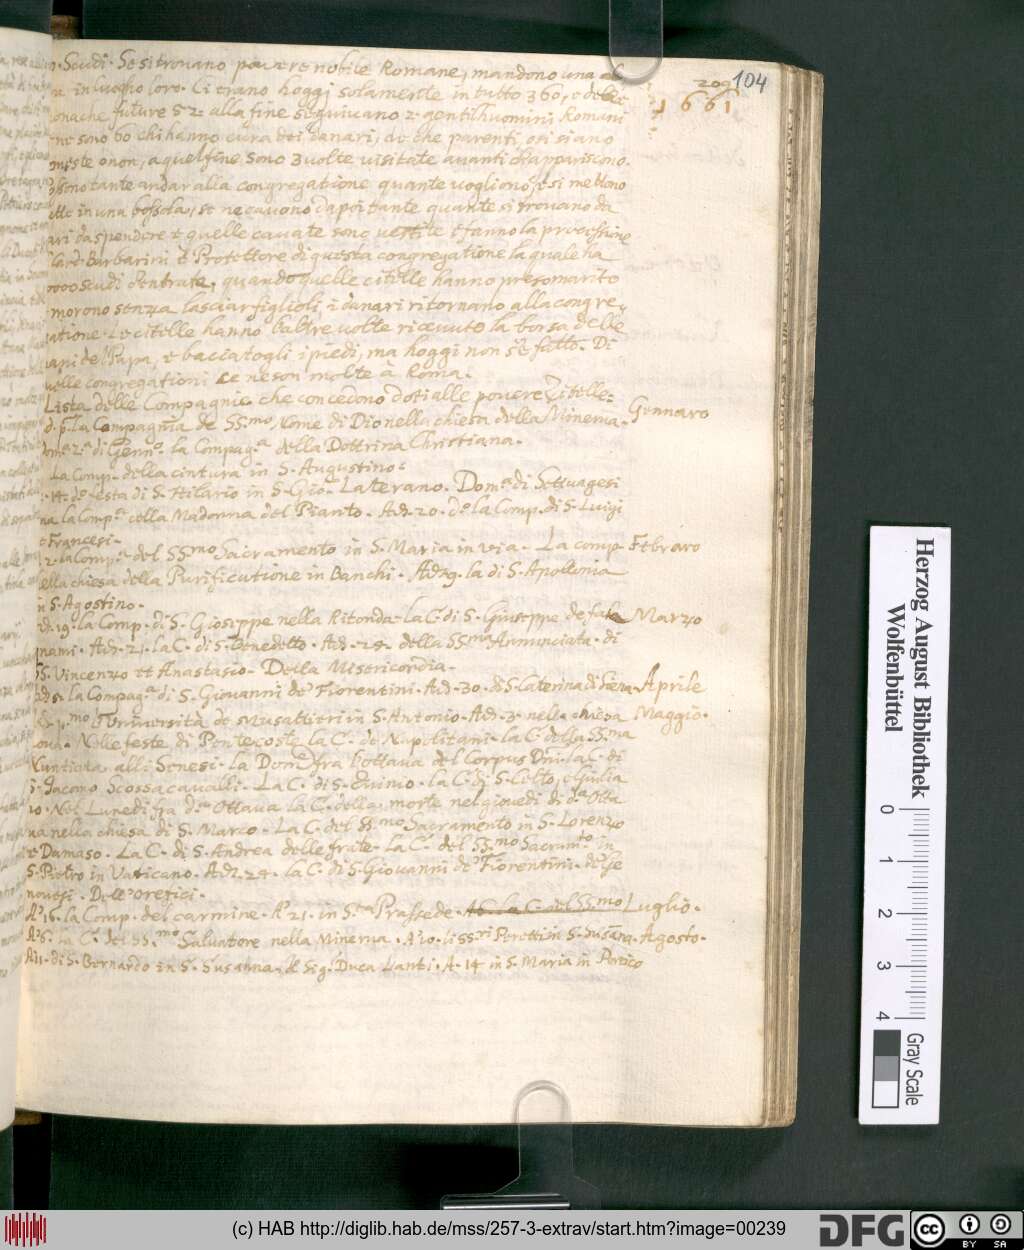 209 104
1661
Scudi. Se si trovano povere nobile Romane, mandono una al
in luogho loro. Ci erano hoggi solamente in tutto 360, e delle
monache future 52. alla fine seguivano 2. gentilhuomini Romani
ne sono 60 chi hanno cura dei danari, de che parenti, o si siano
oneste o non, a quel fine sono 3 volte visitate avanti ch appariscono.
possono tante andar alla congregatione quante vogliono, e si mettono
tutte in una bossola, se ne cavono dapoi tante quante si trovano da
nari da spendere e quelle cavate sono vestite e fanno la processione
Card. Barbarini è Protettore di questa congregatione la quale ha
000 scudi d'entrata, quando quelle citelle hanno preso marito
morono senza lasciar figlioli, i danari ritornano alla congre
gatione. Le citelle hanno l'altre volte ricevuto la borsa delle
mani del Papa, e bacciatogli i piedi, ma hoggi non s'è fatto. Di
quelle congregationi ce ne son molte a Roma.
Lista delle Compagnie che concedono doti alle povere Zitelle.
La Compagnia de SS.mo Nome di Dio nella chiesa della Minerva. Gennaro
Dom.a 2.a di Genn.o la Compag.a della Dottrina Christiana.
La Comp. della cintura in S. Augustino.
14. d.o festa di S. Hilario in S. Gio. Laterano. Dom.a di Settuagesi
ma la Comp.a della Madonna del Pianto. Adi. 20. d.o la Comp. di S. Luigi
e Francesi.
2. la Comp.a del SS.mo Sacramento in S. Maria in via. La comp. Febraro
ella chiesa della Purificatione in Banchi. Adi 9. la di S. Apollonia
in S. Agostino.
Ad. 19. la Comp. di S. Gioseppe nella Ritonda. la C. di S. Giuseppe de fale Marzo
gnami. Adi. 21. la C. di S. Benedetto. Adi. 25. della SS.ma Annunciata. di
SS. Vincenzo et Anastasio. Della Misericordia.
la Compag.a di S. Giovanni de' Fiorentini. Ad. 30. di S. Caterina di Siena. Aprile
Università de Musattieri in S. Antonio. Ad. 3. nella chiesa Maggio.
nova. Nelle feste di Pentecoste la C. de Napolitani. la C. della SS.ma
Nuntiata alli Senesi. la Dom. fra l'ottava del Corpus Dni. la C. di
S. Giacomo Scossacavalli. La C. di S. Quinio. la C. di S. Celso, e Giulia
no. Nel Lunedi fra d.a Ottava la C. della morte nel giovedi di d.a Otta
va nella chiesa di S. Marco. La C. del SS.mo Sacramento in S. Lorenzo
e Damaso. La C. di S. Andrea delle frate. la C. del SS.mo Sacram.to in
S. Pietro in Vaticano. Adi. 24. la C. di S. Giovanni de' Fiorentini. de Ge
novesi. Dell'Orefici.
A. 16. la Comp. del carmine. A. 21. in S.ta Prassede. A 6. la C. del SS.mo Luglio.
A. 6. la C. del SS.mo Salvatore nella Minerva. A. 10. li SS.ri Peretti in S. Susana. Agosto.
A. 11. di S. Bernardo in S. Susanna. de Sig. Duca Lanti. A. 14 in S. Maria in Portico
Herzog August Bibliothek
Wolfenbüttel
0 1 2 3 4
Gray Scale
(c) HAB http://diglib.hab.de/mss/257-3-extrav/start.htm?image=00239
DFG
cc BY SA